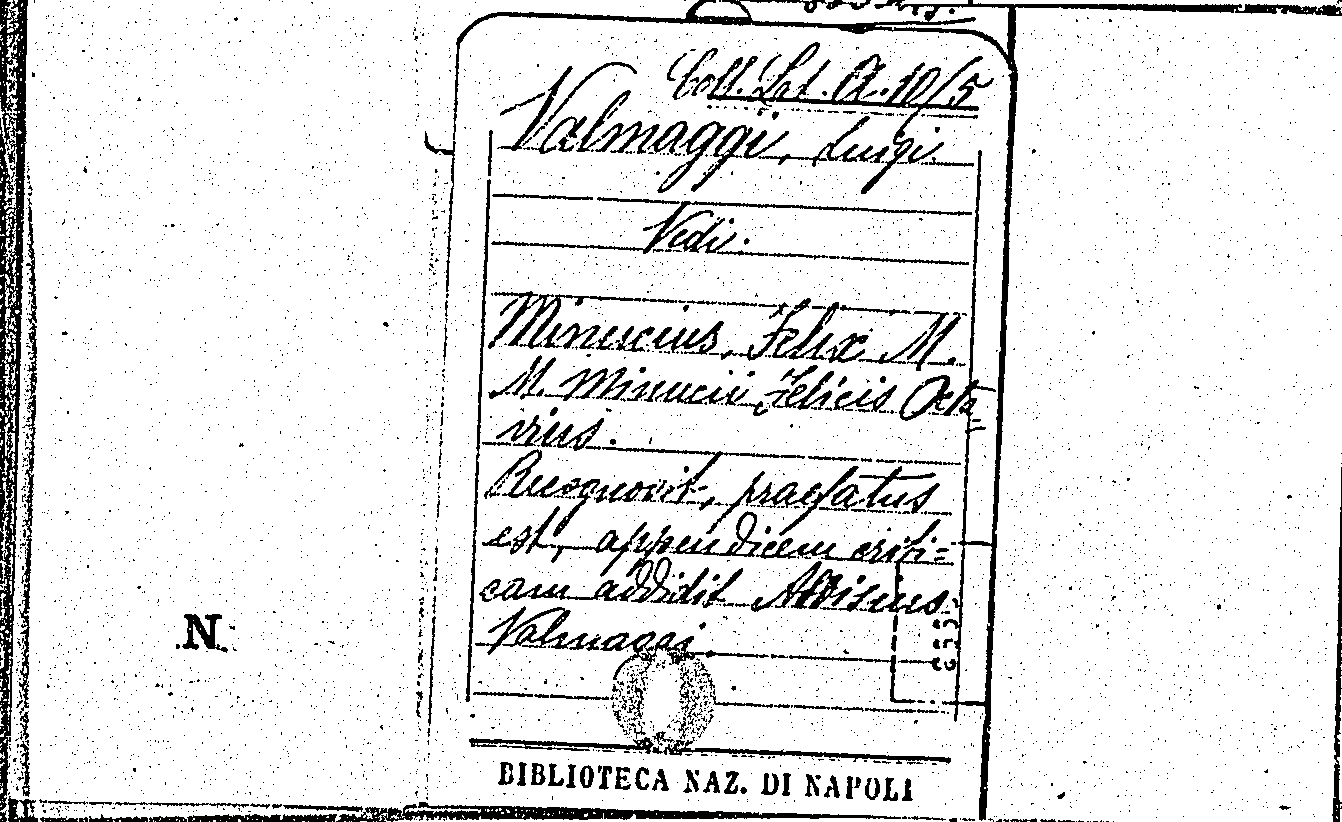 Coll. Lat. A. 10/5
Valmaggi, Luigi
Vedi.
Minucius, Felix M.
M. Minucii Felicis Octa
vius.
Recognovit, praefatus
est, appendicem criti=
cam addidit Aloisius
Valmaggi
N
BIBLIOTECA NAZ. DI NAPOLI